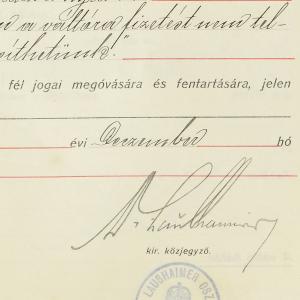 a váltóra fizetést nem tel-
síthetünk."
fél jogai megóvására és fentartására, jelen
évi Deczember hó
Dr. Laubhaimer
kir. közjegyző.
LAUBHAIMER OSZ